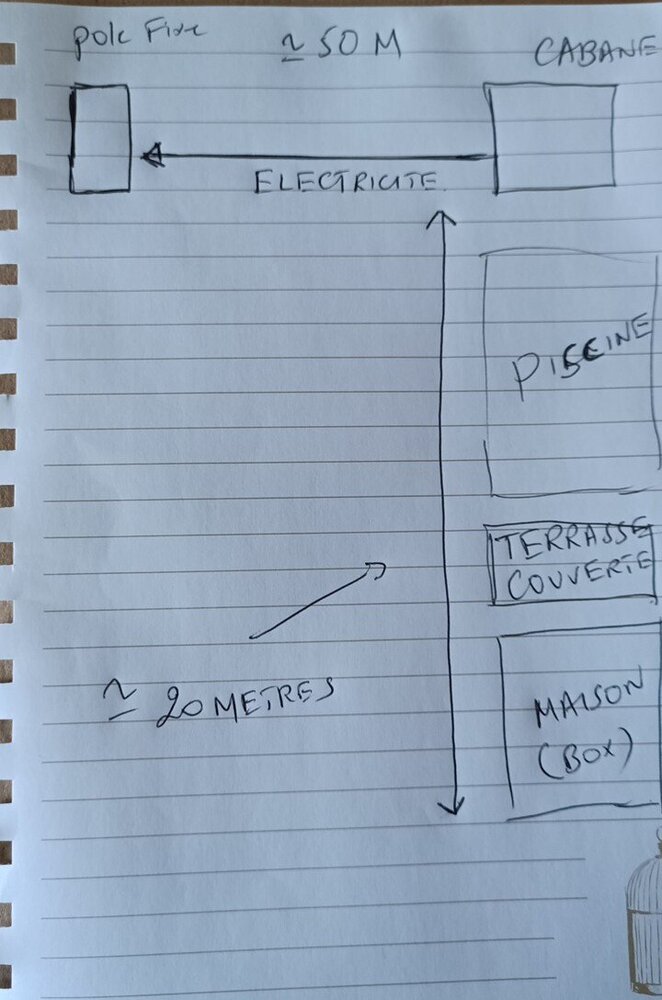 pole Fire
≃ 50 M
CABANE
ELECTRICITE
PISCINE
TERRASSE
COUVERTE
≃ 20 METRES
MAISON
(BOX)